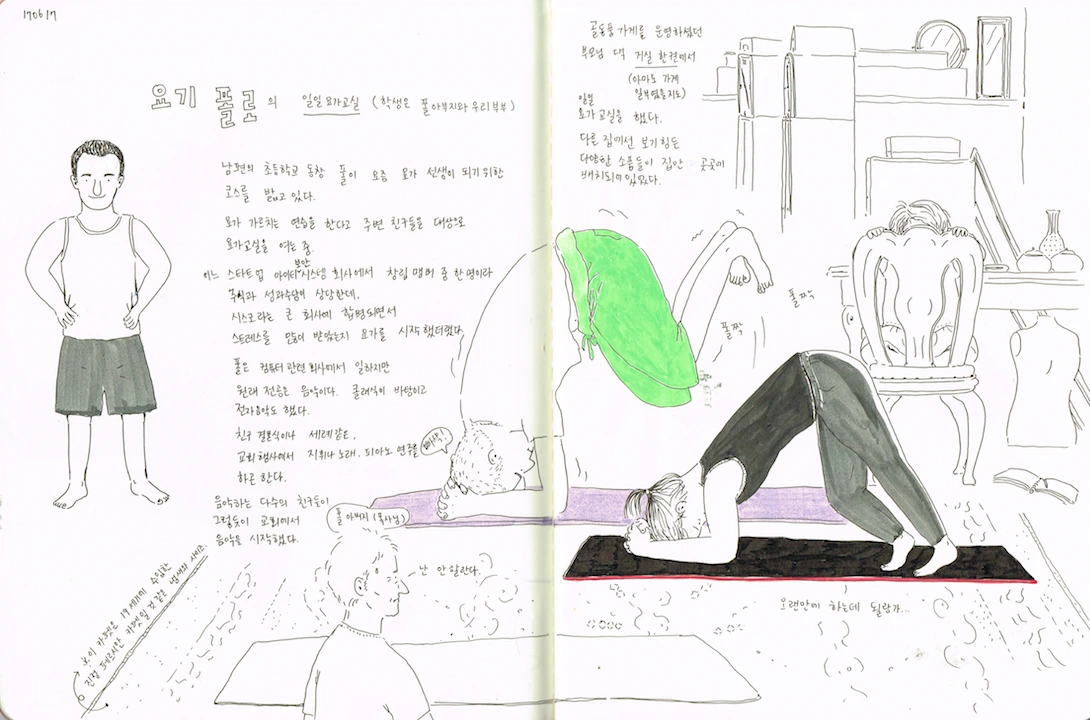 170617
요기 폴로의 일일 요가교실 (학생은 폴 아부지와 우리 부부)
남편의 초등학교 동창 폴이 요즘 요가 선생이 되기 위한
코스를 밟고 있다.
요가 가르치는 연습을 한다고 주변 친구들을 대상으로
요가교실을 여는 중.
어느 스타트업 아이티 보안 시스템 회사에서 창립 멤버 중 한 명이라
주식과 성과수당이 상당한데,
시스코라는 큰 회사에 합병되면서
스트레스를 많이 받았는지 요가를 시작했더랬다.
폴은 컴퓨터 관련 회사에서 일하지만
원래 전공은 음악이다. 클래식이 바탕이고
전자음악도 했다.
친구 결혼식이나 세례같은,
교회 행사에서 지휘나 노래, 피아노 연주를
하곤 한다.
음악하는 다수의 친구들이
그렇듯이 교회에서
음악을 시작했다.
폴 아버지 (목사님)
난 안할란다.
이 카펫은 19세기에 수입한
진정 페르시안 카펫일 것 같은 냄새와 사이즈.
골동품 가게를 운영하셨던
부모님 댁 거실 한켠에서
(아마도 가게
일부였을지도)
일일
요가교실을 했다.
다른 집에선 보기 힘든
다양한 소품들이 집안 곳곳에
배치되어 있었다.
폴짝
폴짝
오랜만에 하는데 될랑가...